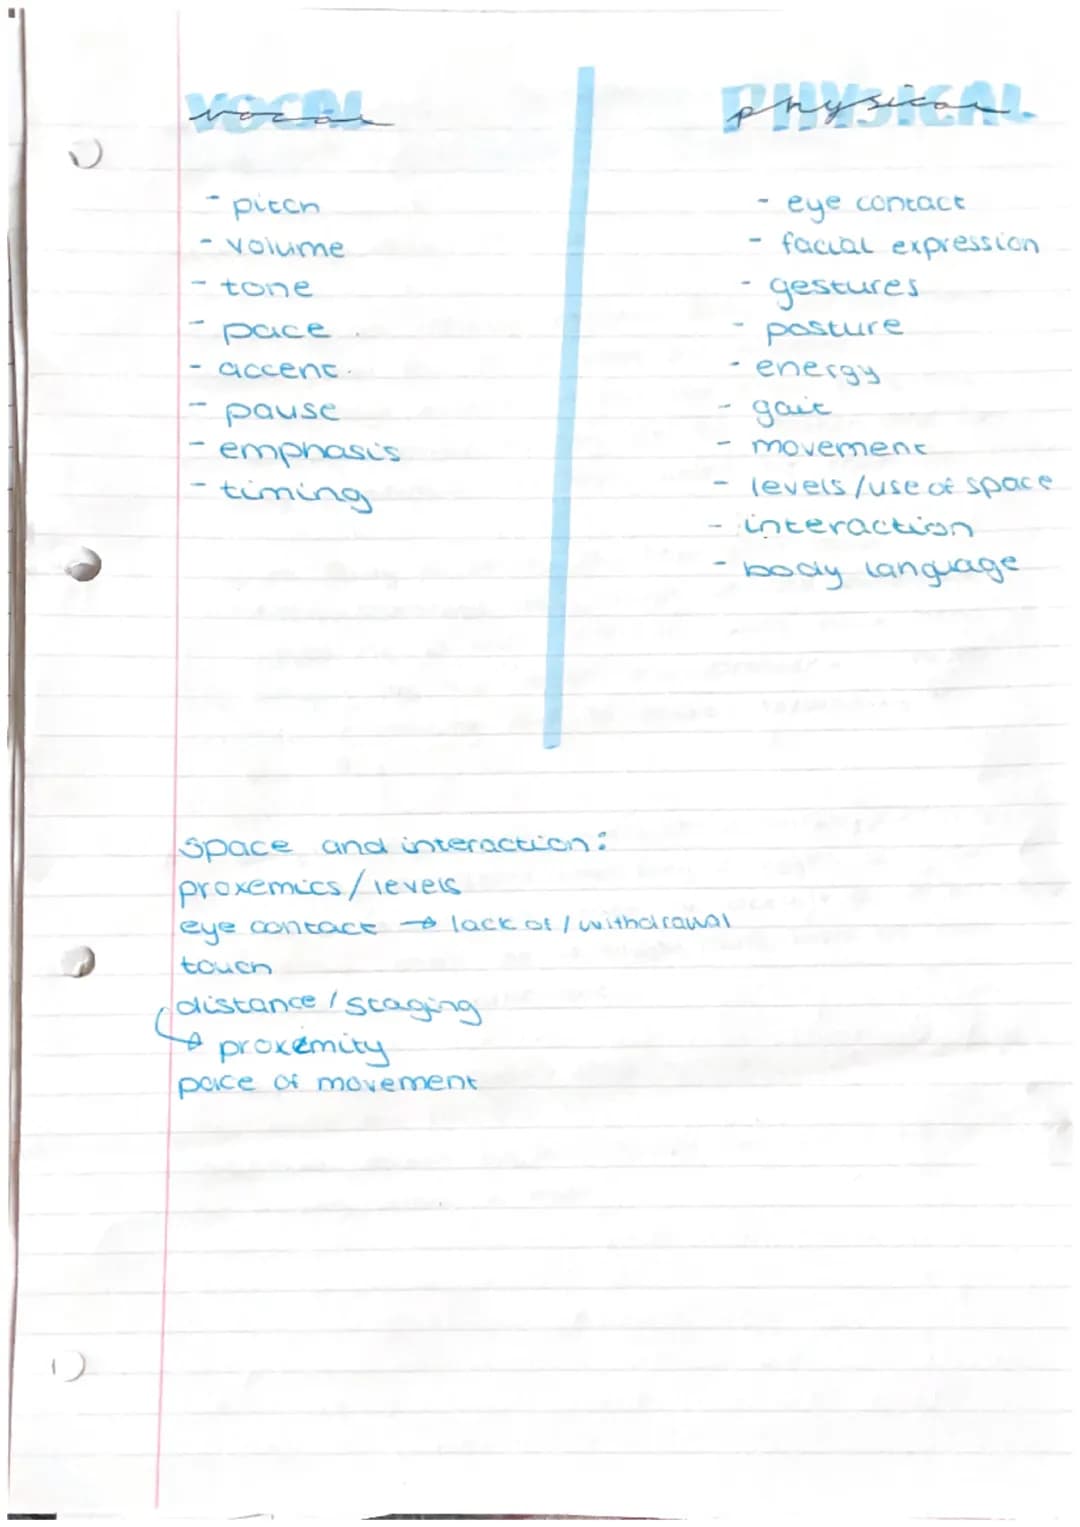 VOCAL
vocal
- pitch
- volume
- tone
- pace
- accent
- pause
- emphasis
- timing
PHYSICAL
physical
- eye contact
- facial expression
- gestures
- posture
- energy
- gait
- movement
- levels/use of space
- interaction
- body language
Space and interaction:
proxemics/levels
eye contact → lack of / withdrawal
touch
distance / staging
↳ proximity
pace of movement